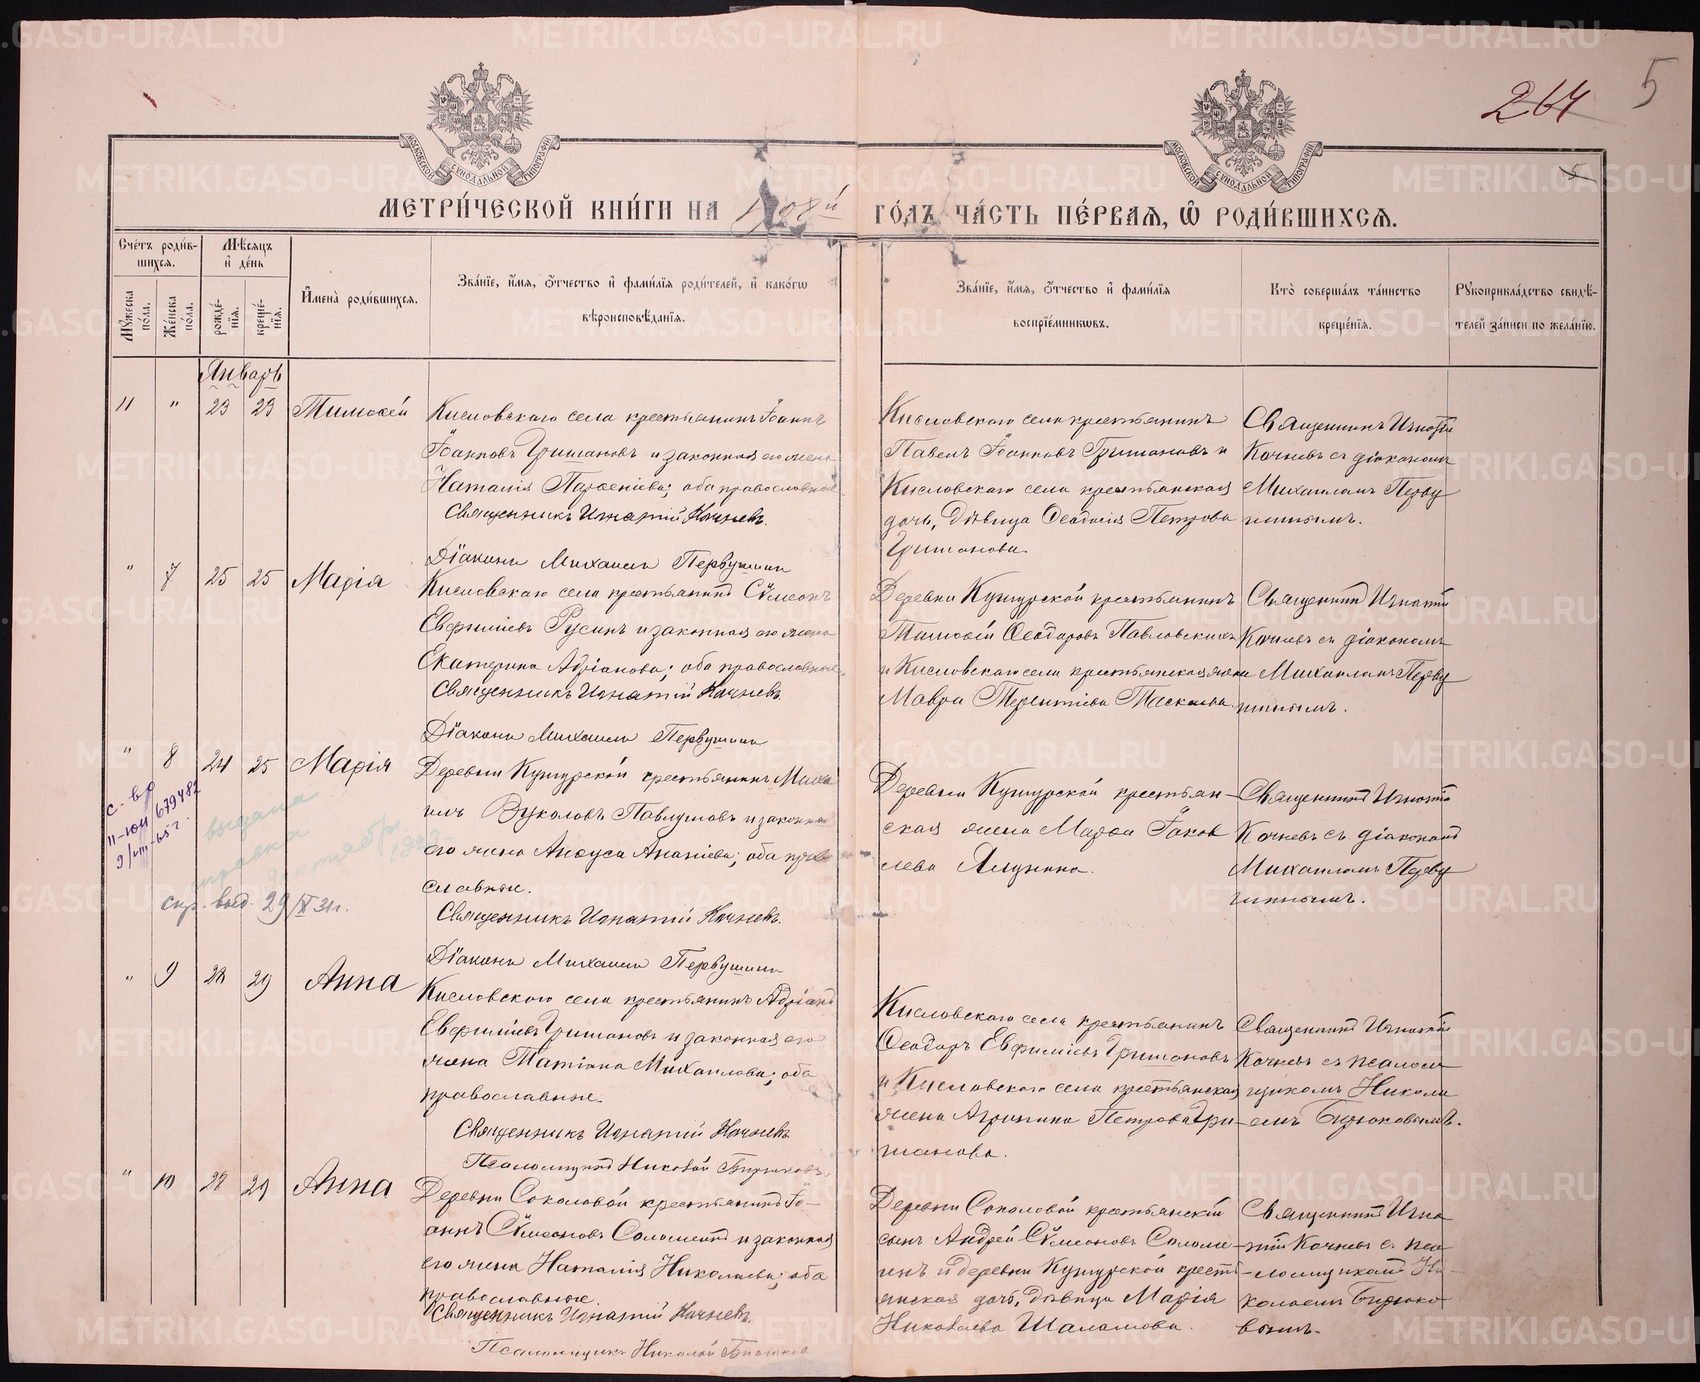 264
5
5
МОСКОВСКОЙ СѴНОДАЛЬНОЙ ТИПОГРАФІИ
МОСКОВСКОЙ СѴНОДАЛЬНОЙ ТИПОГРАФІИ
МЕТРИ́ЧЕСКОЙ КНИ́ГИ НА 1908й ГО́ДЪ ЧА́СТЬ ПЕ́РВАЯ, Ѿ РОДИ́ВШИХСЯ.
Сче́тъ роди́в-
шихся.
Мѣ́сяцъ
и де́нь
Му́жеска по́ла.
Же́нска по́ла.
рожде́-
нія.
креще́-
нія.
Имена̀ роди́вшихся.
Зва́ніе, и́мя, о́тчество и фами́лія роди́телей, и како́гѡ
вѣроисповѣ́данія.
Зва́ніе, и́мя, о́тчество и фами́лія
воспріе́мникѡвъ.
Кто̀ соверша́лъ та́инство
креще́нія.
Рукоприкла́дство свидѣ́-
телей за́писи по жела́нію.
Январь
11 " 23 23 Тимоѳей
Кисловскаго села крестьянинъ Іоаннъ
Іоанновъ Гришановъ и законная его жена
Наталія Парѳеніева; оба православные
Священникъ Игнатій Кочневъ.
Діаконъ Михаилъ Первушинъ
Кисловскаго села крестьянинъ
Павелъ Іоанновъ Гришановъ и
Кисловскаго села крестьянская
дочь, дѣвица Ѳеодосія Петрова
Гришанова.
Священникъ Игнатій
Кочневъ съ діакономъ
Михаиломъ Перву
шинымъ.
" 7 25 25 Марія
Кисловскаго села крестьянинъ Сѵмеонъ
Евфиміевъ Русинъ и законная его жена
Екатерина Адріанова; оба православные
Священникъ Игнатій Кочневъ
Діаконъ Михаилъ Первушинъ
Деревни Кушурской крестьянинъ
Тимоѳей Ѳеодоровъ Павловскихъ
и Кисловскаго села крестьянская жена
Мавра Терентіева
Священникъ Игнатій
Кочневъ съ діакономъ
Михаиломъ Перву
шинымъ.
" 8 24 25 Марія
с-во
679482
9/VIII-65г.
выдана
справка
спр. выд. 29/X 31г.
Деревни Кушурской крестьянинъ Миха
илъ Вуколовъ Павлушовъ и законная
его жена Анѳуса Ананіева; оба право
славные.
Священникъ Игнатій Кочневъ.
Діаконъ Михаилъ Первушинъ
Деревни Кушурской крестьян-
ская жена Марѳа Іаков
лева Ялунина.
Священникъ Игнатій
Кочневъ съ діакономъ
Михаиломъ Перву
шинымъ.
" 9 28 29 Анна
Кисловскаго села крестьянинъ Адріанъ
Евфиміевъ Гришановъ и законная его
жена Татіана Михаилова; оба
православные.
Священникъ Игнатій Кочневъ
Псаломщикъ Николай Бирюковъ
Кисловскаго села крестьянинъ
Ѳеодоръ Евфиміевъ Гришановъ
и Кисловскаго села крестьянская
жена Агрипина Петрова Гри-
шанова.
Священникъ Игнатій
Кочневъ съ псалом
щикомъ Никола
емъ Бирюковымъ.
" 10 28 29 Анна
Деревни Соколовой крестьянинъ Іо-
аннъ Сѵмеоновъ Соломеинъ и законная
его жена Наталія Николаева; оба
православные.
Священникъ Игнатій Кочневъ.
Псаломщикъ Николай Бирюков
Деревни Соколовой крестьянскій
сынъ Андрей Сѵмеоновъ Соломе-
инъ и деревни Кушурской кресть-
янская дочь, дѣвица Марія
Николаева Шаламова.
Священникъ Игна
тій Кочневъ съ пса-
ломщикомъ Ни-
колаемъ Бирюко
вымъ.
METRIKI.GASO-URAL.RU